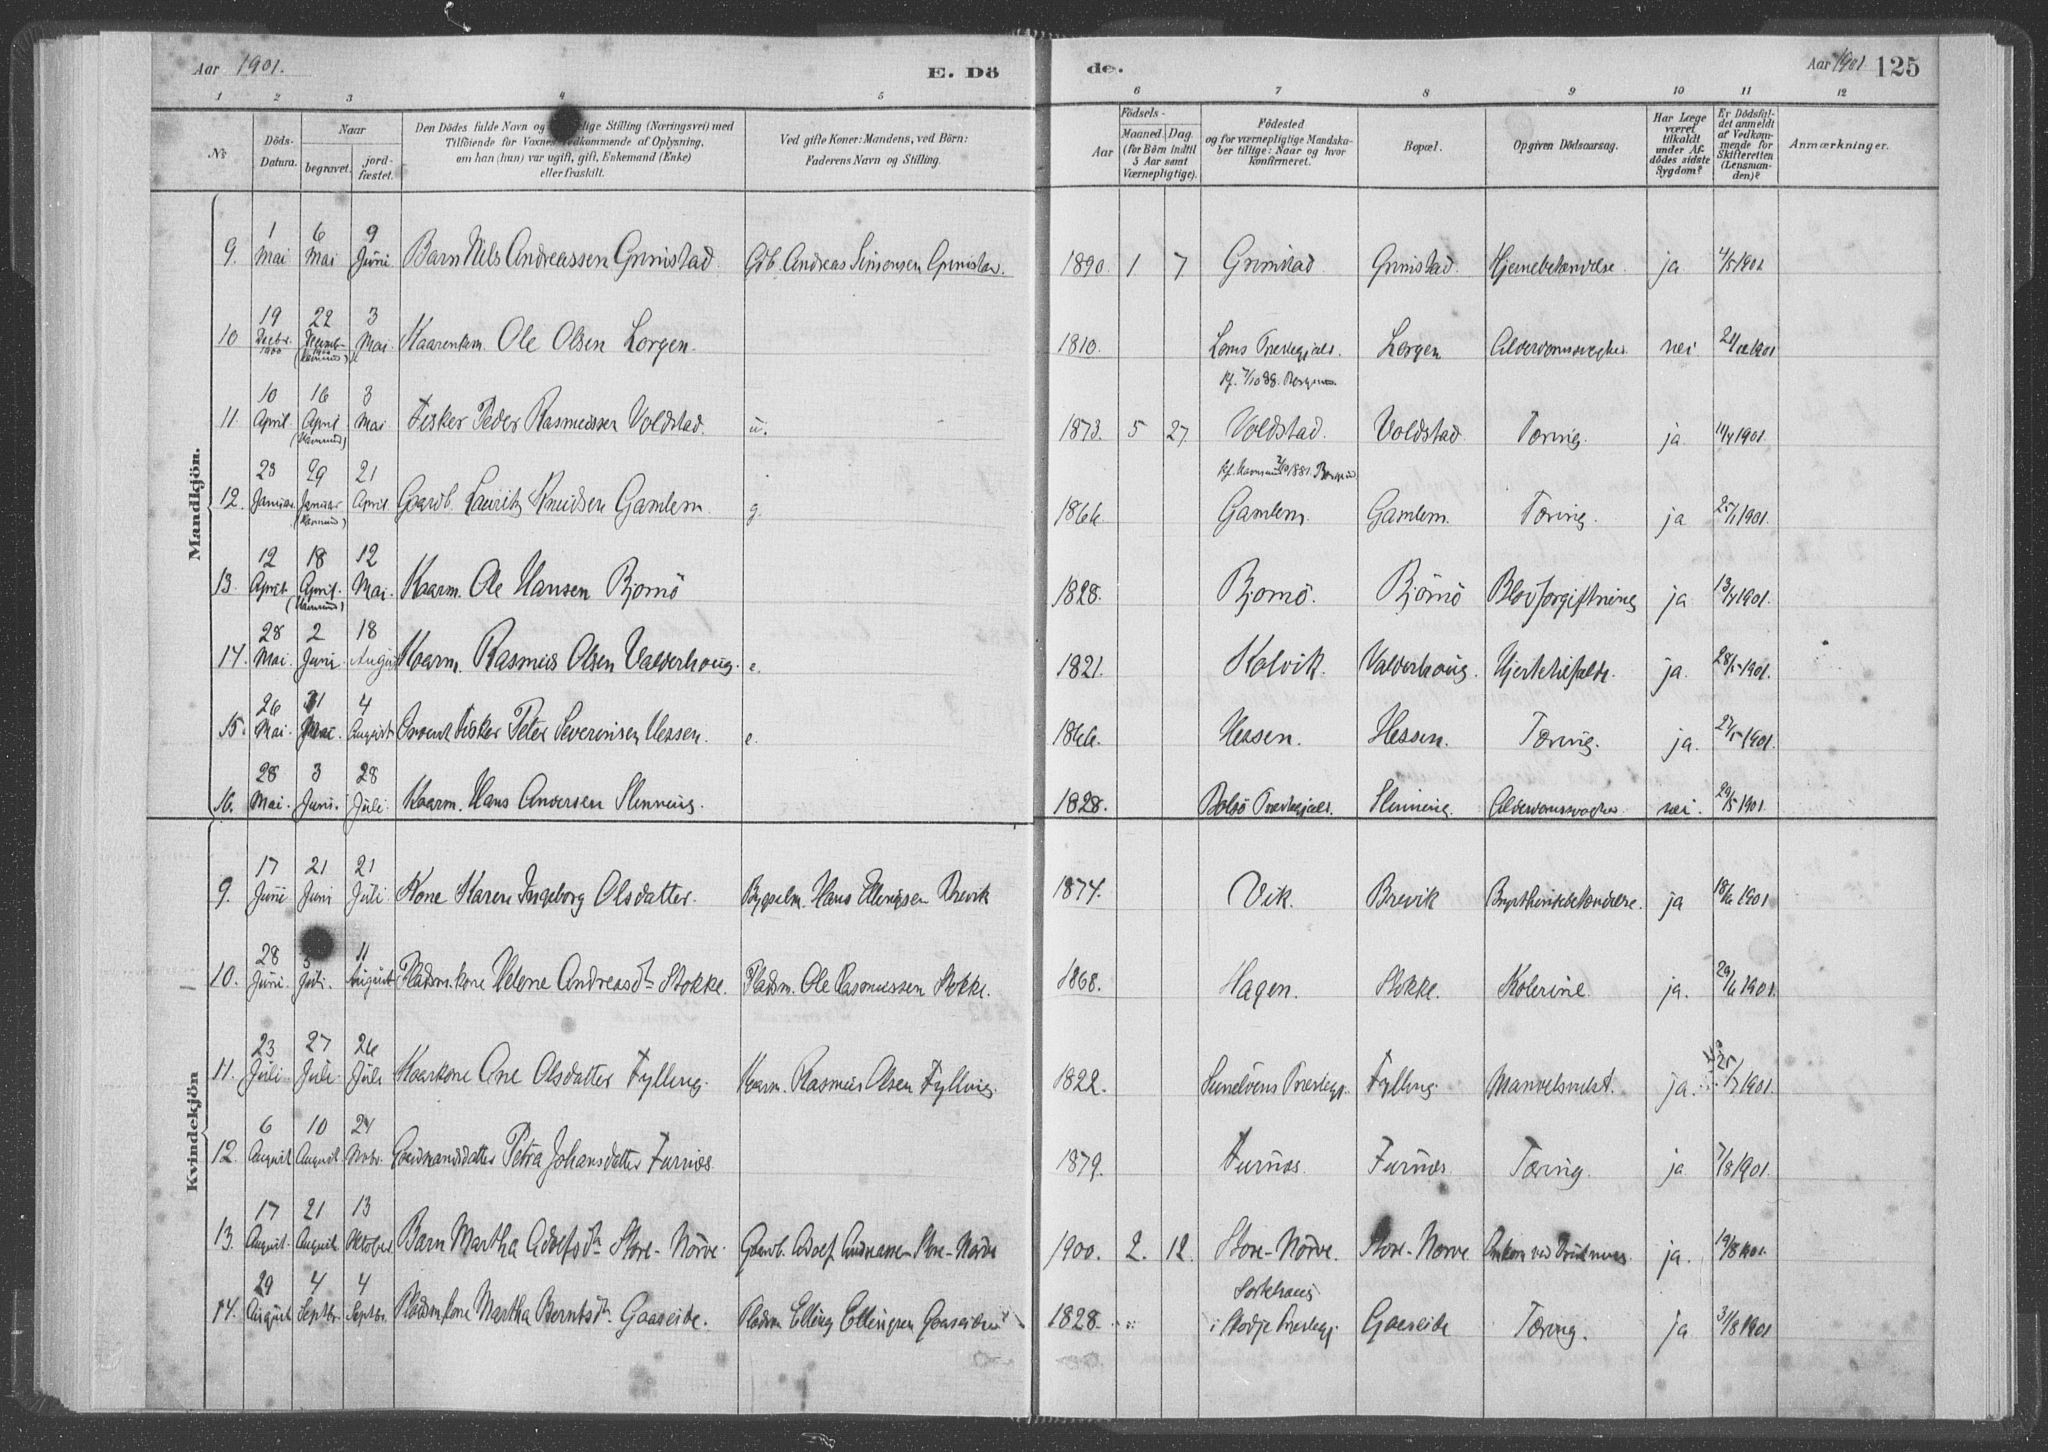 Aar 1901.
E. Dö
de.
Aar 1901
125
1 2 3 4 5 6 7 8 9 10 11 12
No
Döds-Datum.
Naar begravet. jord-fæstet.
Den Dödes fulde Navn og Stilling (Næringsvei) med Tilföiende for Voxnes Vedkommende af Oplysning, om han (hun) var ugift, gift, Enkemand (Enke) eller fraskilt.
Ved gifte Koner: Mandens, ved Börn: Faderens Navn og Stilling.
Födsels-
Aar Maaned. Dag. (for Börn indtil 5 Aar samt Værnepligtige).
Födested og for værnepligtige Mandskaber tillige: Naar og hvor Konfirmeret.
Bopæl.
Opgiven Dödsaarsag.
Har Læge været tilkaldt under Afdödes sidste Sygdom?
Er Dödsfaldet anmeldt af Vedkommende for Skifteretten (Lensmanden)?
Anmærkninger.
Mandkjön.
9. 1 Mai 6 Mai 9 Juni Barn Nils Andreassen Grimstad. Gdb. Andreas Simonsen Grimstad. 1890. 1 7 Grimstad. Grimstad. Hjernebetændelse. ja 4/5 1901
10. 19 Decbr. 1900 22 Decemb. 1900 (Hamnsund) 3 Mai. Kaarenkm. Ole Olsen Lorgen. 1810. Loms Præstegjeld. Lorgen Alderdomssvaghed nei 1901
11. 10 April 16 April (Hamnsund) 3 Mai. Fisker Peder Rasmussen Voldstad. u. 1873. 5 27 Voldstad. Voldstad Tæring. ja 11/4 1901.
12. 23 Januar. 29 Januar (Hamnsund) 21 April Gaardb. Laurits Knudsen Gamlem. g. 1866. Gamlem. Gamlem. Tæring. ja 25/1 1901.
13. 12 April. 18 April. (Hamnsund) 12 Mai. Kaarm. Ole Hansen Bjornö 1828. Bjornö. Bjornö Blodforgiftning ja 13/4 1901.
14. 28 Mai. 2 Juni. 18 August Kaarm. Rasmus Olsen Valderhoug. e. 1821. Kolvik. Valderhoug. Hjertetilfælde. ja. 28/5 1901.
15. 26 Mai. 31 Mai 4 August Fisker Peter Severinsen Hessen. e. 1866. Hessen. Hessen. Tæring. ja. 27/5 1901.
16. 28 Mai. 3 Juni. 28 Juli Kaarm. Hans Andersen Slinning. 1828. Bolsö Præstegjeld. Slinning. Alderdomssvaghed nei. 29/5 1901
Kvindekjön
9. 17 Juni 21 Juni 21 Juli Kone Karen Ingeborg Olsdatter. Bygselm. Hans Ellingsen Brevik 1874. Vik. Brevik Brysthindebetændelse. ja 18/6 1901
10. 28 Juni. 5 Juli. 11 August Pladsm.kone Helene Andreasdtr Stokke. Pladsm. Ole Rasmussen Stokke. 1868. Hagen. Stokke. Kolerine. ja. 29/6 1901.
11. 23 Juli 27 Juli. 26 Juli Kaarkone Ane Olsdatter Fylling. Kaarm. Rasmus Olsen Fylling. 1822. Sunelvens Præstegj. Fylling ja. 25/7 1901.
12. 6 August 10 August 24 Novbr. Gaardmandsdatter Petra Johansdatter Furnæs. 1879. Furnæs. Furnæs Tæring. ja 7/8 1901.
13. 17 August. 21 August 13 Oktober Barn Martha Adolfsdtr Store-Nörve. Gaardb. Adolf Andreassen Store-Nörve 1900. 2. 12. Store-Nörve. Store-Nörve ja. 19/8 1901.
14. 29 August 4 Septbr. 4 Septbr. Pladsmkone Martha Berntsdtr Gaaseide. Pladsm Elling Ellingsen Gaaseide 1828. i Skodje Præstegj. Gaaseide Tæring. ja 31/8 1901